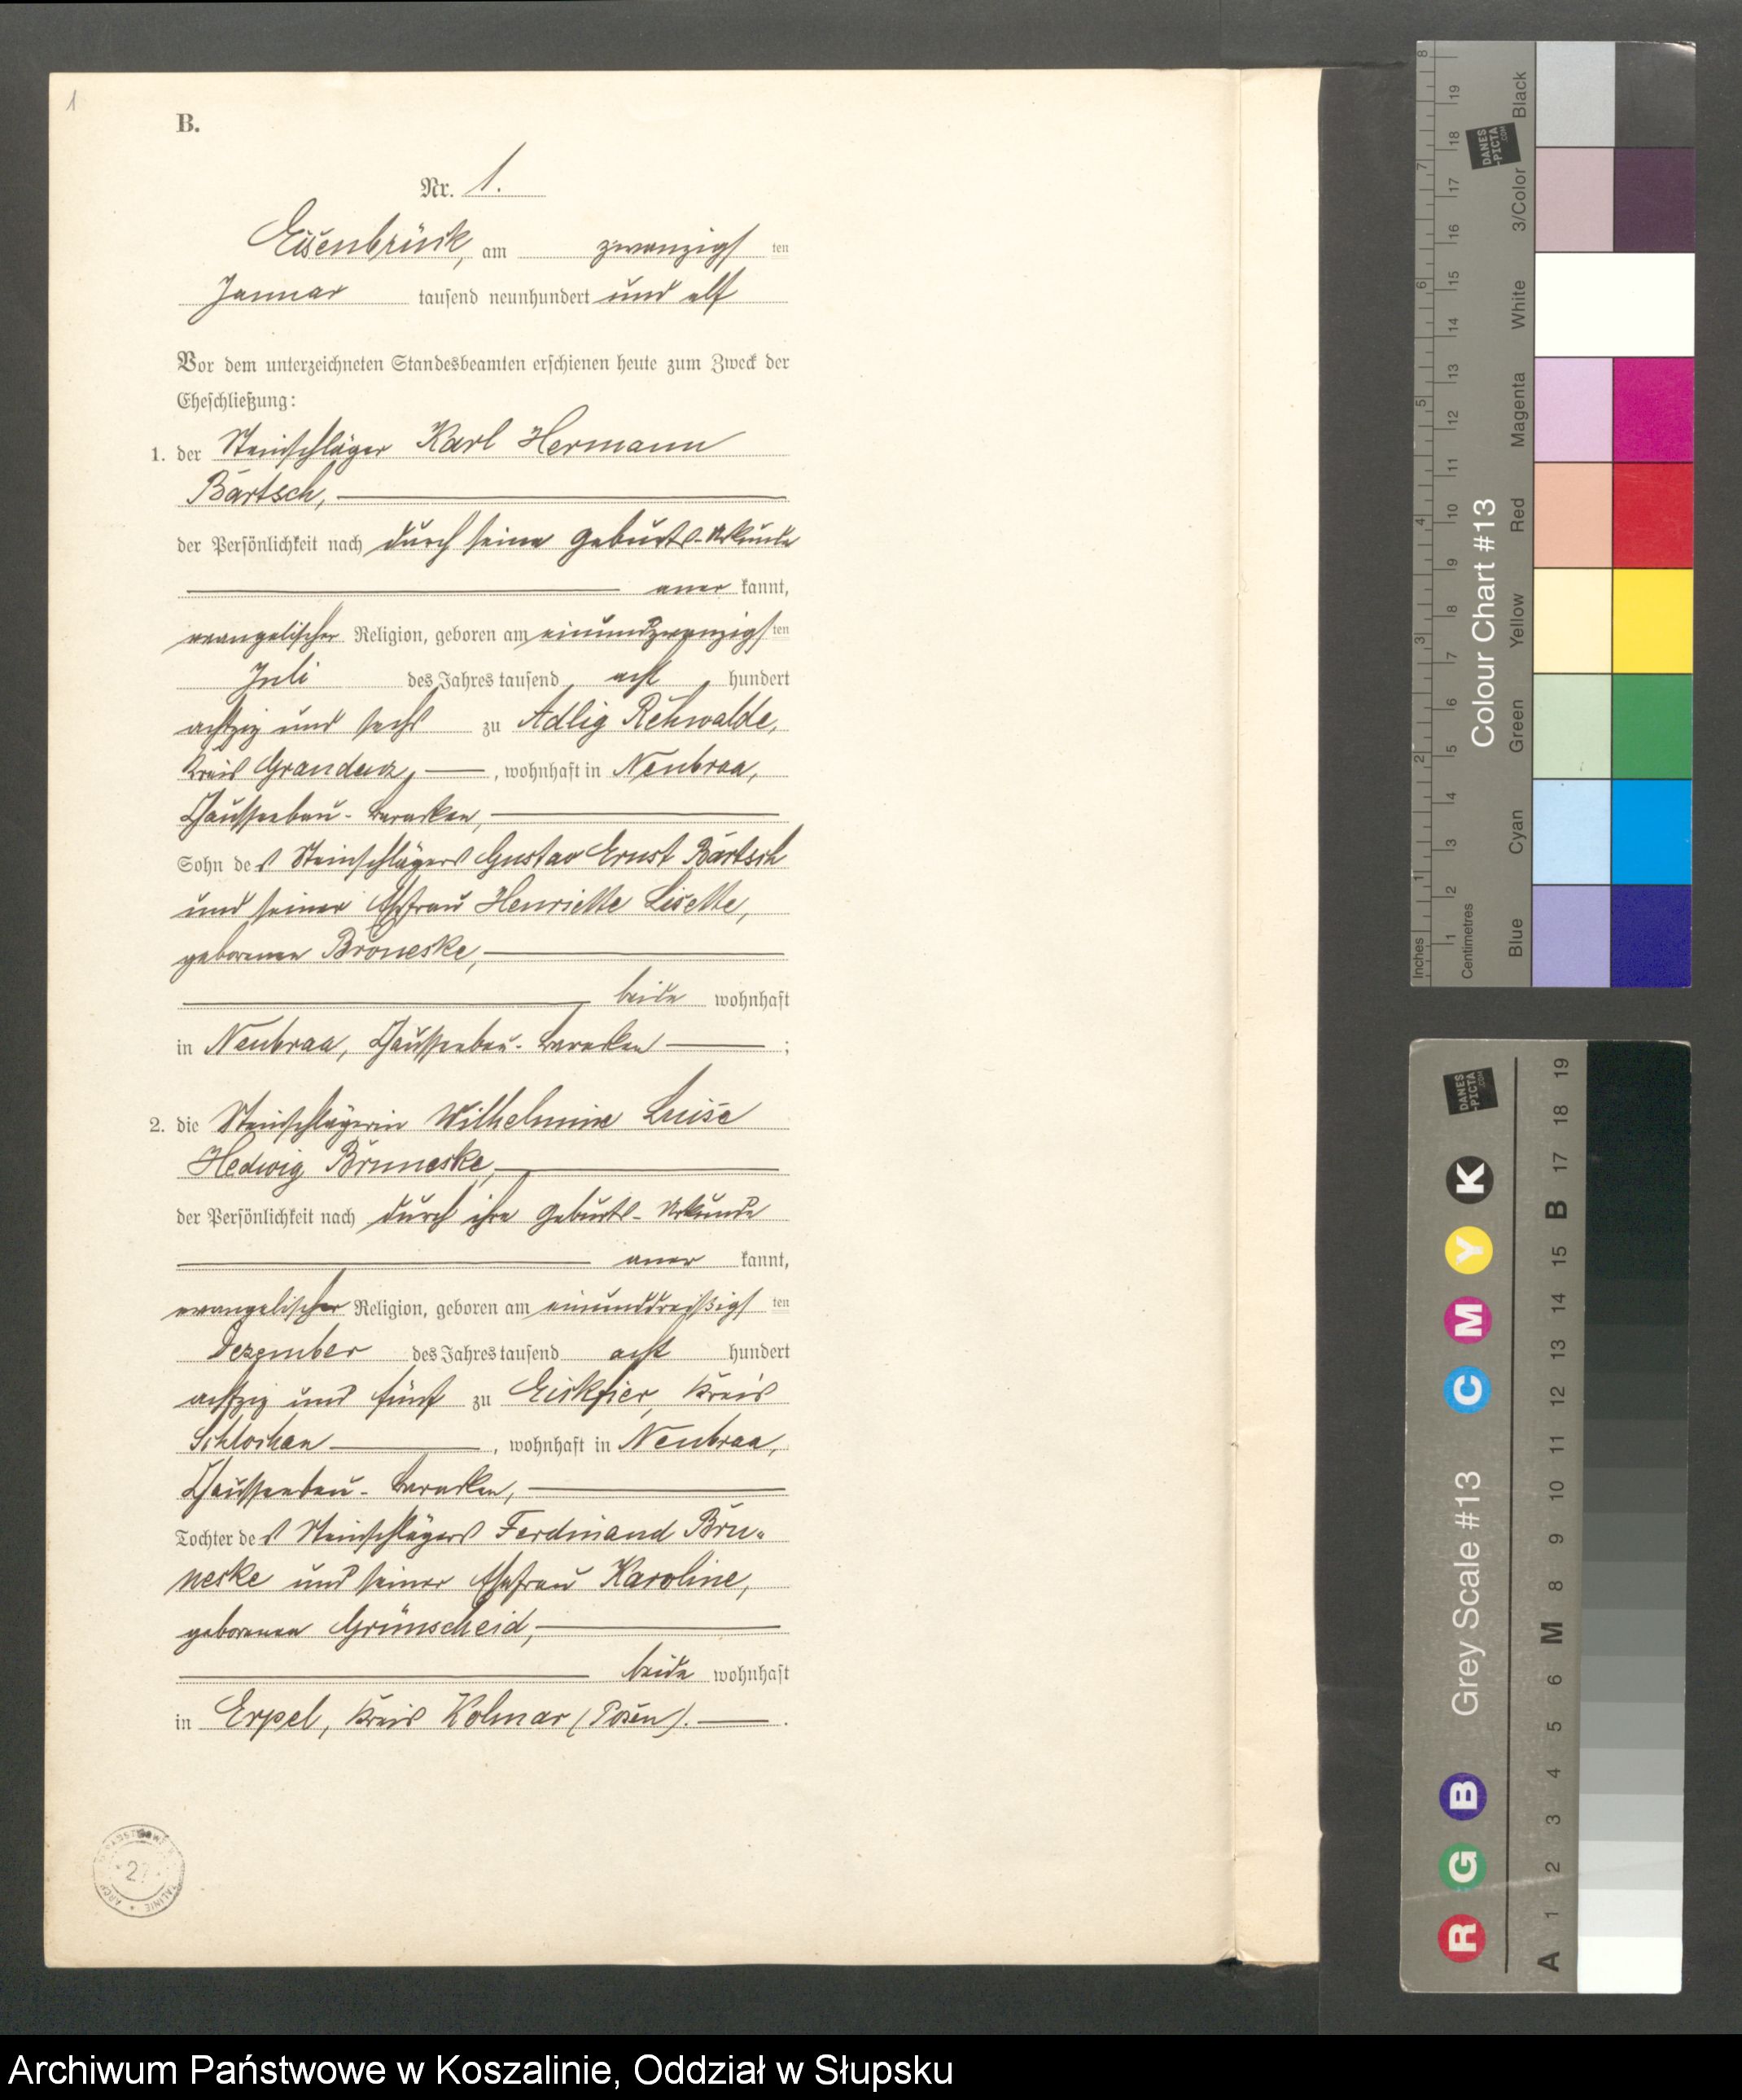 1
B.
Nr. 1.
Eisenbrück, am zwanzigsten
Januar tausend neunhundert und elf
Vor dem unterzeichneten Standesbeamten erschienen heute zum Zweck der
Eheschließung:
1. der Steinschläger Karl Hermann
Bartsch,
der Persönlichkeit nach durch seine Geburts-Urkunde
anerkannt,
evangelischer Religion, geboren am einundzwanzigsten
Juli des Jahres tausend achthundert
achtzig und sechs zu Adlig Rehwalde,
Kreis Graudenz, wohnhaft in Neubraa,
Chausseebau-Baracken,
Sohn des Steinschlägers Gustav Ernst Bartsch
und seiner Ehefrau Henriette Lisette,
geborenen Broneske,
beide wohnhaft
in Neubraa, Chausseebau-Baracken ;
2. die Steinschlägerin Wilhelmine Luise
Hedwig Bruneske,
der Persönlichkeit nach durch ihre Geburts-Urkunde
anerkannt,
evangelischer Religion, geboren am einunddreißigsten
Dezember des Jahres tausend achthundert
achtzig und fünf zu Eickfier, Kreis
Schlochau, wohnhaft in Neubraa,
Chausseebau-Baracken,
Tochter des Steinschlägers Ferdinand Bru-
neske und seiner Ehefrau Karoline,
geborenen Grünscheid,
beide wohnhaft
in Erpel, Kreis Kolmar (Posen).
Inches
Centimetres
Colour Chart #13
Blue Cyan Green Yellow Red Magenta White 3/Color Black
DANES-PICTA.COM
Grey Scale #13
R G B C M Y K
A 1 2 3 4 5 6 M 8 9 10 11 12 13 14 15 B 17 18 19
DANES-PICTA.COM
Archiwum Państwowe w Koszalinie, Oddział w Słupsku